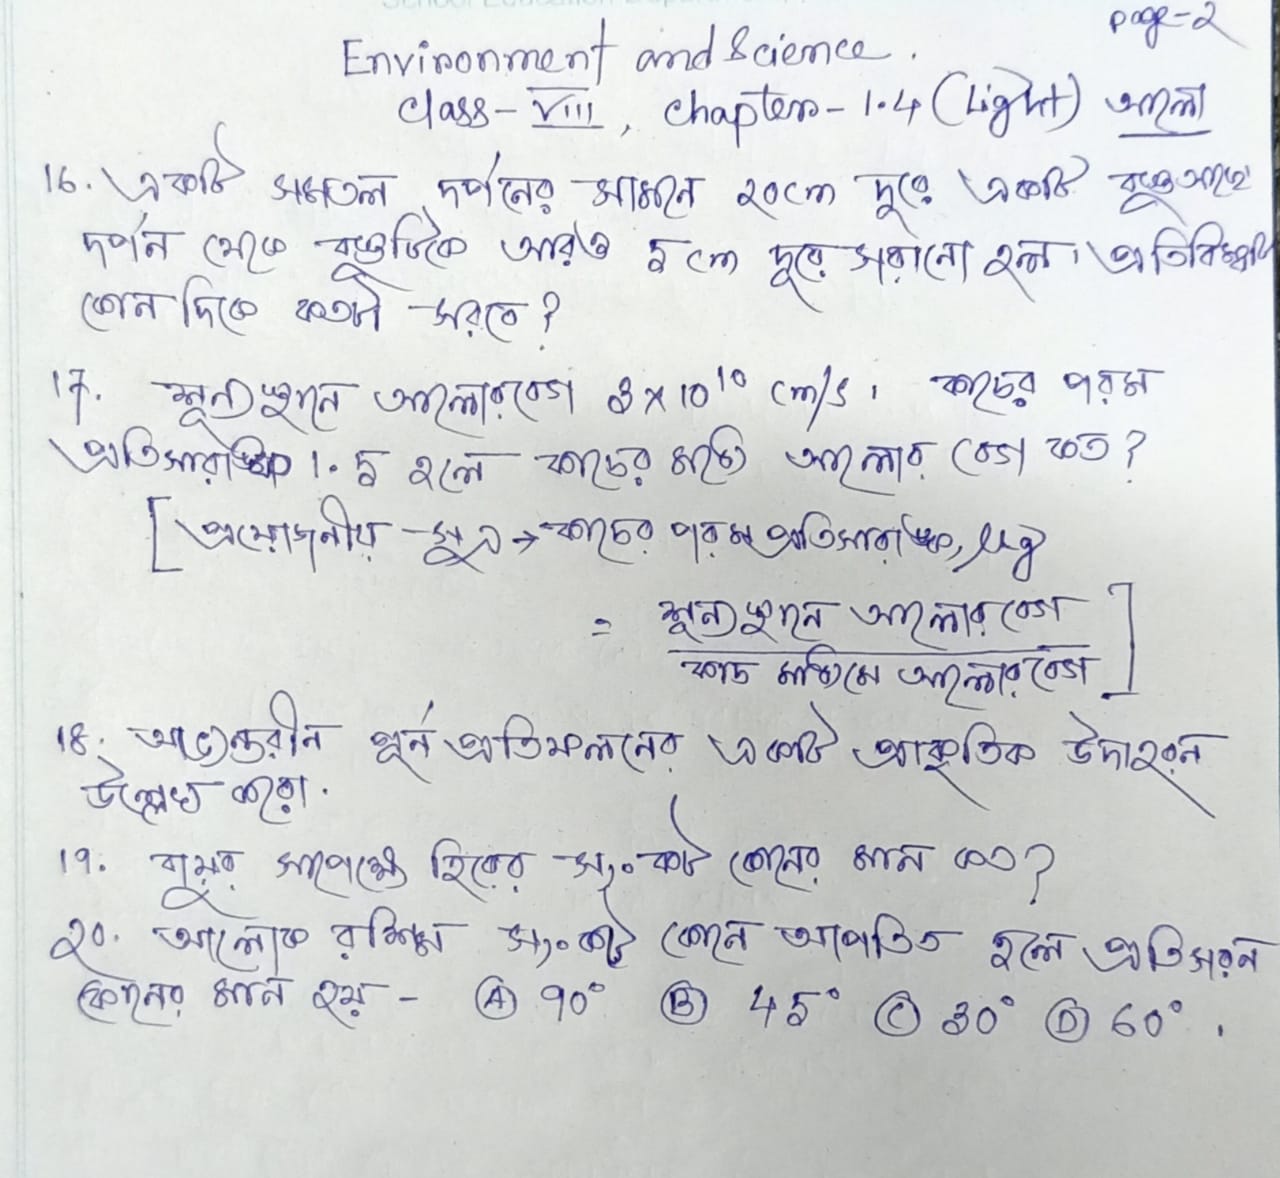 page-2
Environment and Science.
class-VIII, chapter-1.4 (Light) আলো
16. একটি সমতল দর্পনের সামনে ২০cm দূরে একটি বস্তু আছে
দর্পন থেকে বস্তুটিকে আরও 5 cm দূরে সরানো হল। প্রতিবিম্বটি
কোন দিকে কতটা সরবে?
17. শূন্যস্থানে আলোর বেগ 3×10¹⁰ cm/s। কাচের পরম
প্রতিসরাঙ্ক 1.5 হলে কাচের মধ্যে আলোর বেগ কত?
[প্রয়োজনীয় সূত্র → কাচের পরম প্রতিসরাঙ্ক, μg
= শূন্যস্থানে আলোর বেগ
কাচ মাধ্যমে আলোর বেগ]
18. আভ্যন্তরীন পূর্ন প্রতিফলনের একটি প্রাকৃতিক উদাহরন
উল্লেখ করো.
19. বায়ুর সাপেক্ষে হিরের সংকট কোনের মান কত?
20. আলোক রশ্মি সংকট কোনে আপতিত হলে প্রতিসরন
কোনের মান হয় - Ⓐ 90° Ⓑ 45° Ⓒ 30° Ⓓ 60°.